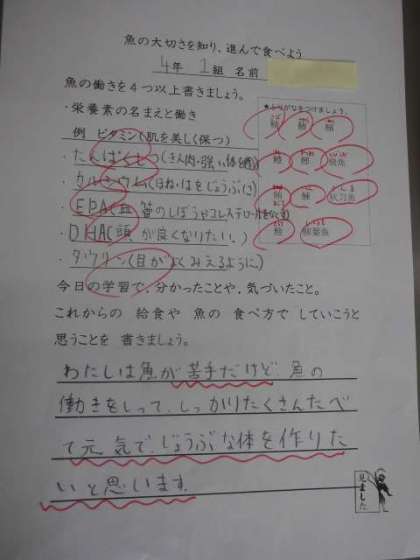 魚の大切さを知り、進んで食べよう
4年 1組 名前
魚の働きを4つ以上書きましょう。
・栄養素の名まえと働き
例 ビタミン(肌を美しく保つ)
・たんぱくしつ(きん肉・強い体を
・カルシウム(ほね・はをじょうぶに)
・EPA(血管のしぼうやコレステロール
・DHA(頭が良くなりたい。)
・タウリン(目がよくみえるように)
★ふりがなをつけましょう。
秋刀魚
今日の学習で、分かったことや、気づいたこと。
これからの 給食や 魚の 食べ方で していこうと
思うことを 書きましょう。
わたしは魚が苦手だけど、魚の
働きをしって、しっかりたくさんたべ
て元気で、じょうぶな体を作りた
いと思います。
見ました